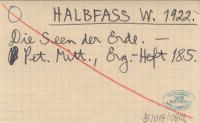 HALBFASS W. 1922.
Die Seen der Erde. —
Pet. Mitt., Erg.-Heft 185.